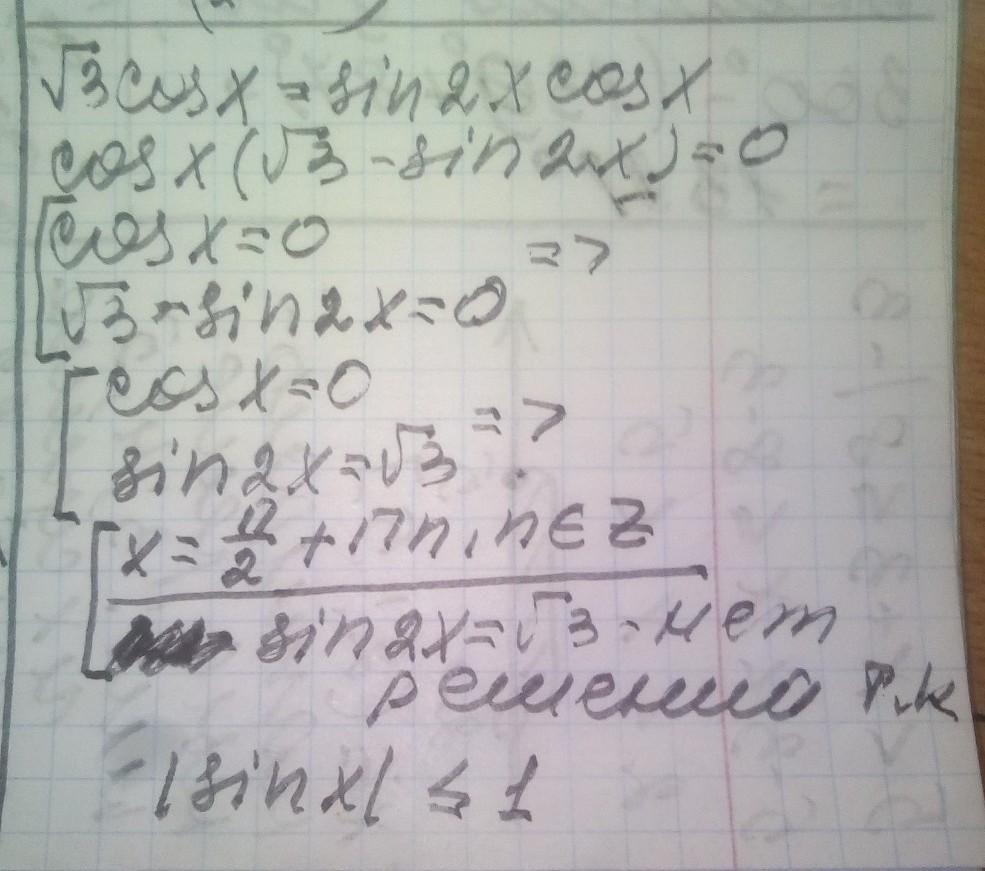 √3 cos x = sin 2x cos x
cos x (√3 - sin 2x) = 0
cos x = 0
=>
√3 - sin 2x = 0
cos x = 0
=>
sin 2x = √3
x = π/2 + πn, n ∈ Z
sin 2x = √3 - нет
решений т.к
|sin x| ≤ 1